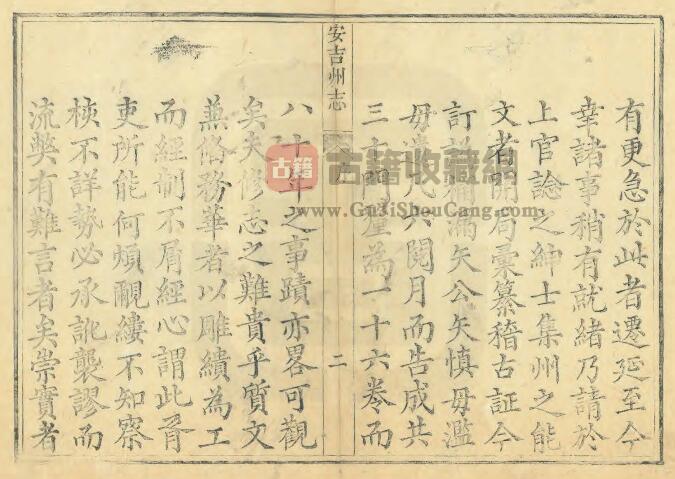 有更急於此者遷延至今
幸諸事稍有就緒乃請於
上官諗之紳士集州之能
文者開局彙纂稽古証今
訂訛補漏矢公矢慎毋濫
毋遺凡六閱月而告成共
三十門釐為一十六卷而
安吉州志
二
八十年之事蹟亦畧可觀
矣夫修志之難貴乎質文
兼偹務華者以雕繢為工
而經制不屑經心謂此胥
吏所能何煩覼縷不知察
核不詳勢必承訛襲謬而
流獘有難言者矣崇實者
古籍 古籍收藏網
www.GuJiShouCang.com